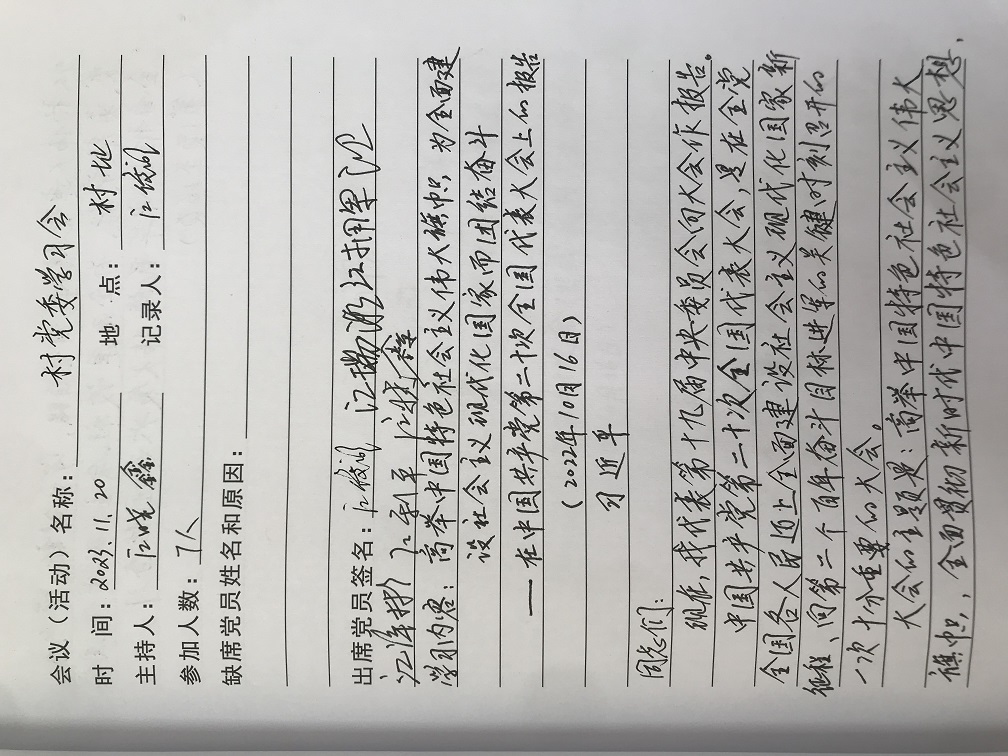 会议（活动）名称：村党委学习会
时 间：2023.11.20 地 点：村地
主持人：江晓鑫 记录人：江俊
参加人数：7人
缺席党员姓名和原因：
出席党员签名：江俊 江
江 江 江
学习内容：高举中国特色社会主义伟大旗帜，为全面建
设社会主义现代化国家而团结奋斗
——在中国共产党第二十次全国代表大会上的报告
（2022年10月16日）
习近平
同志们：
现在，我代表第十九届中央委员会向大会作报告。
中国共产党第二十次全国代表大会，是在全党
全国各人民迈上全面建设社会主义现代化国家新
征程、向第二个百年奋斗目标进军的关键时刻召开的
一次十分重要的大会。
大会的主题是：高举中国特色社会主义伟大
旗帜，全面贯彻新时代中国特色社会主义思想，